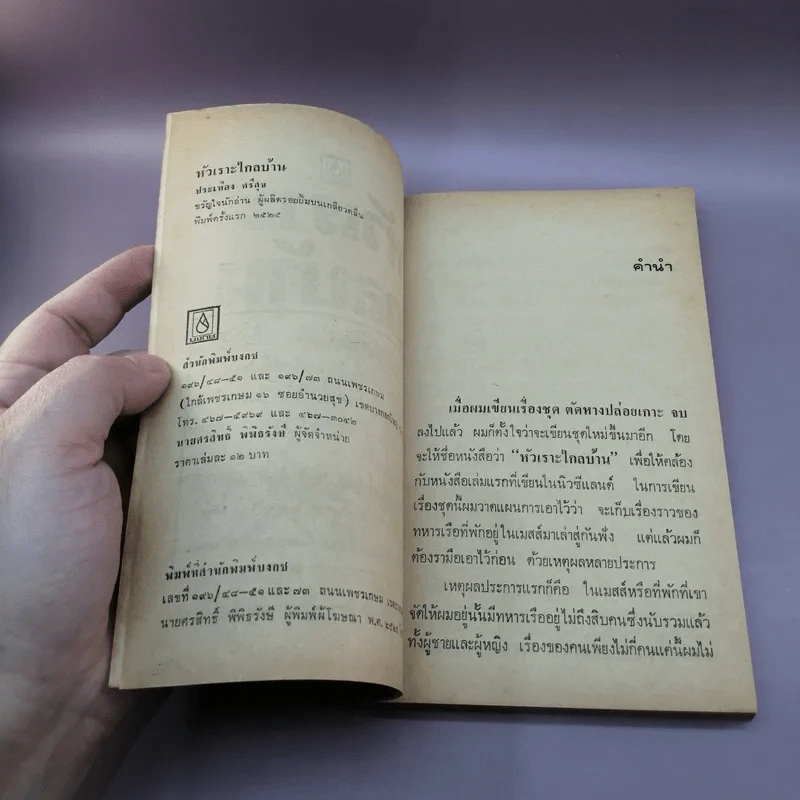 หัวเราะไกลบ้าน
ประเทือง ศรีสุข
ขวัญใจนักอ่าน ผู้ผลิตรอยยิ้มบนเกลียวคลื่น
พิมพ์ครั้งแรก ๒๕๒๔
บงกช
สำนักพิมพ์บงกช
๑๙๖/๔๘-๕๑ และ ๑๙๖/๗๓ ถนนเพชรเกษม
(ใกล้เพชรเกษม ๑๖ ซอยอำนวยสุข) เขตบางกอกใหญ่
โทร. ๔๖๗-๕๙๖๙ และ ๔๖๗-๓๐๔๒
นายศรสิทธิ์ พิพิธรังษี ผู้จัดจำหน่าย
ราคาเล่มละ ๑๒ บาท
พิมพ์ที่สำนักพิมพ์บงกช
เลขที่ ๑๙๖/๔๘-๕๑ และ ๗๓ ถนนเพชรเกษม
นายศรสิทธิ์ พิพิธรังษี ผู้พิมพ์ผู้โฆษณา พ.ศ.
คำนำ
เมื่อผมเขียนเรื่องชุด ตัดหางปล่อยเกาะ จบ
ลงไปแล้ว ผมก็ตั้งใจว่าจะเขียนชุดใหม่ขึ้นมาอีก โดย
จะให้ชื่อหนังสือว่า "หัวเราะไกลบ้าน" เพื่อให้คล้อง
กับหนังสือเล่มแรกที่เขียนในนิวซีแลนด์ ในการเขียน
เรื่องชุดนี้ผมวาดแผนการเอาไว้ว่า จะเก็บเรื่องราวของ
ทหารเรือที่พักอยู่ในเมสส์มาเล่าสู่กันฟัง แต่แล้วผมก็
ต้องรามือเอาไว้ก่อน ด้วยเหตุผลหลายประการ
เหตุผลประการแรกก็คือ ในเมสส์หรือที่พักที่เขา
จัดให้ผมอยู่นั้นมีทหารเรืออยู่ไม่ถึงสิบคนซึ่งนับรวมแล้ว
ทั้งผู้ชายและผู้หญิง เรื่องของคนเพียงไม่กี่คนแค่นี้ผมไม่